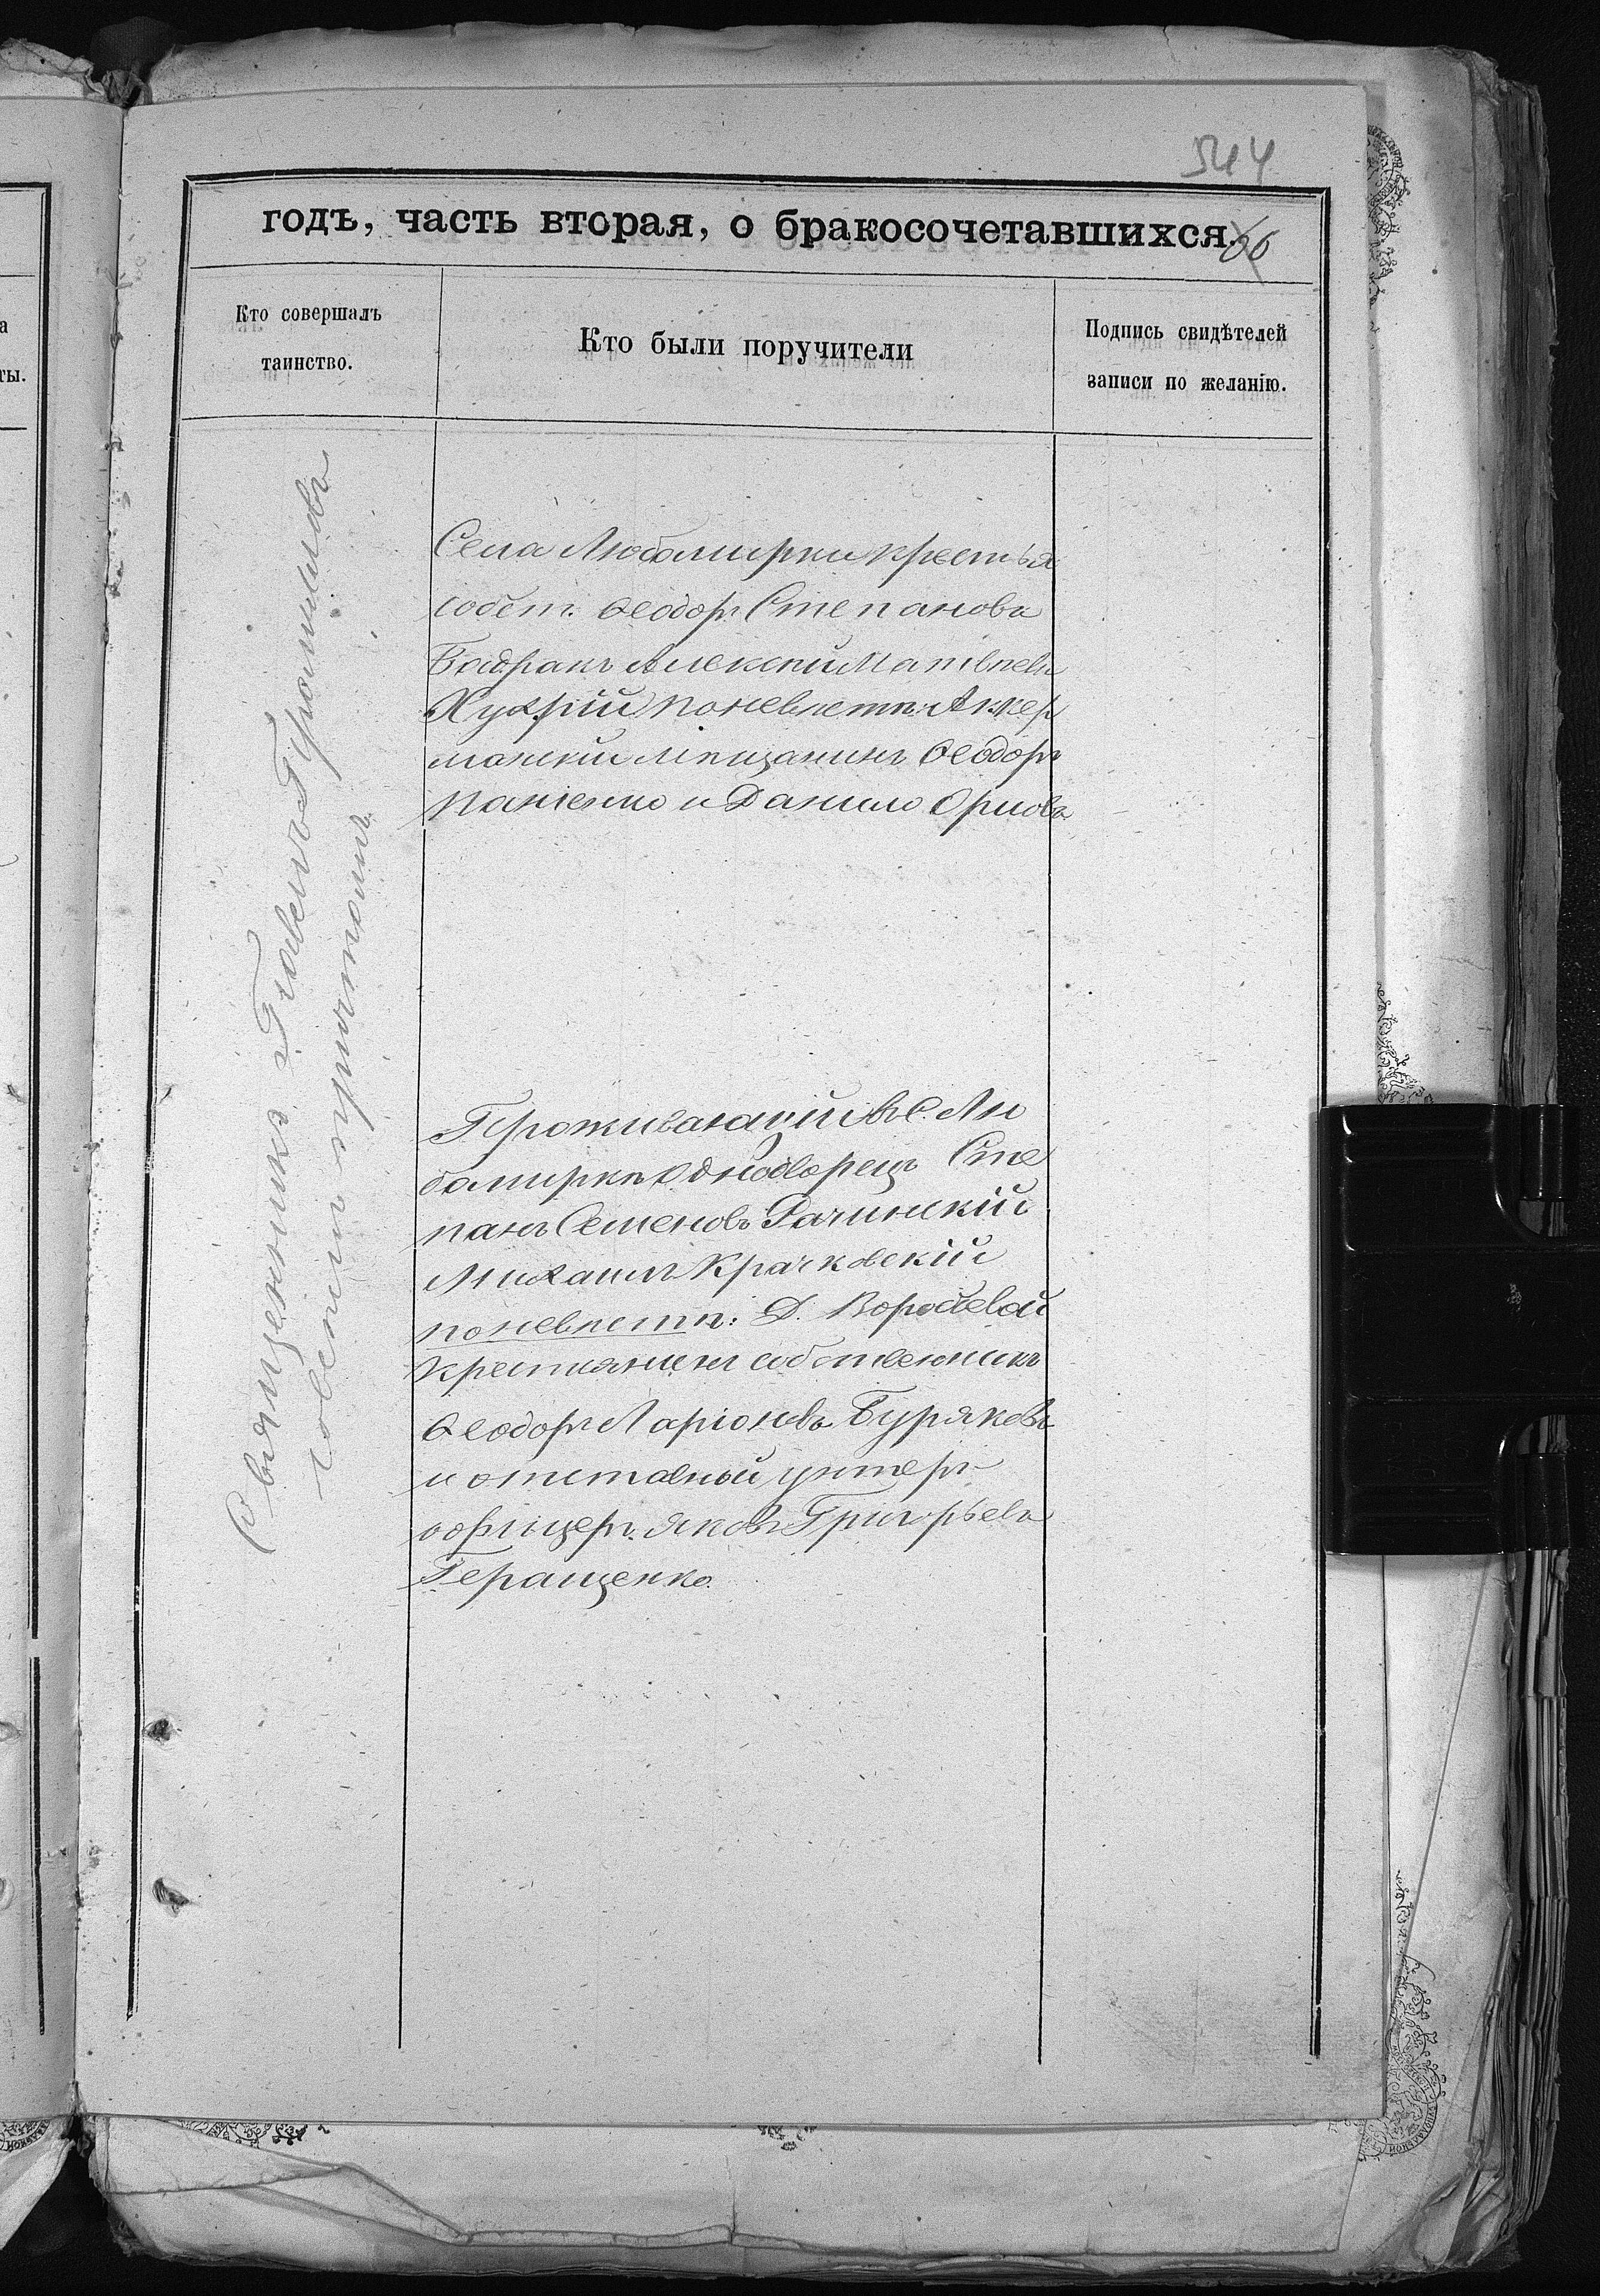 544
годъ, часть вторая, о бракосочетавшихся.
66
Кто совершалъ
таинство.
Кто были поручители
Подпись свидѣтелей
записи по желанію.
Священникъ Павелъ
совмѣстно причтомъ
Села Любомирки крестья
собст. Ѳеодоръ Степановъ
Бодранъ Алексѣй Матвѣевъ
поневѣстѣ: Аккер
манскій мѣщанинъ Ѳеодоръ
и Данило Орловъ
Проживающій въ С. Лю
бомиркѣ Однодворецъ Сте
панъ Семеновъ Рачинскій
Михаилъ Крачковскій
поневѣстѣ: Д.
Крестьянинъ собственникъ
Ѳеодоръ Ларіоновъ Буряковъ
и отставной унтеръ
офицеръ Яковъ Григорьевъ
Геращенко.